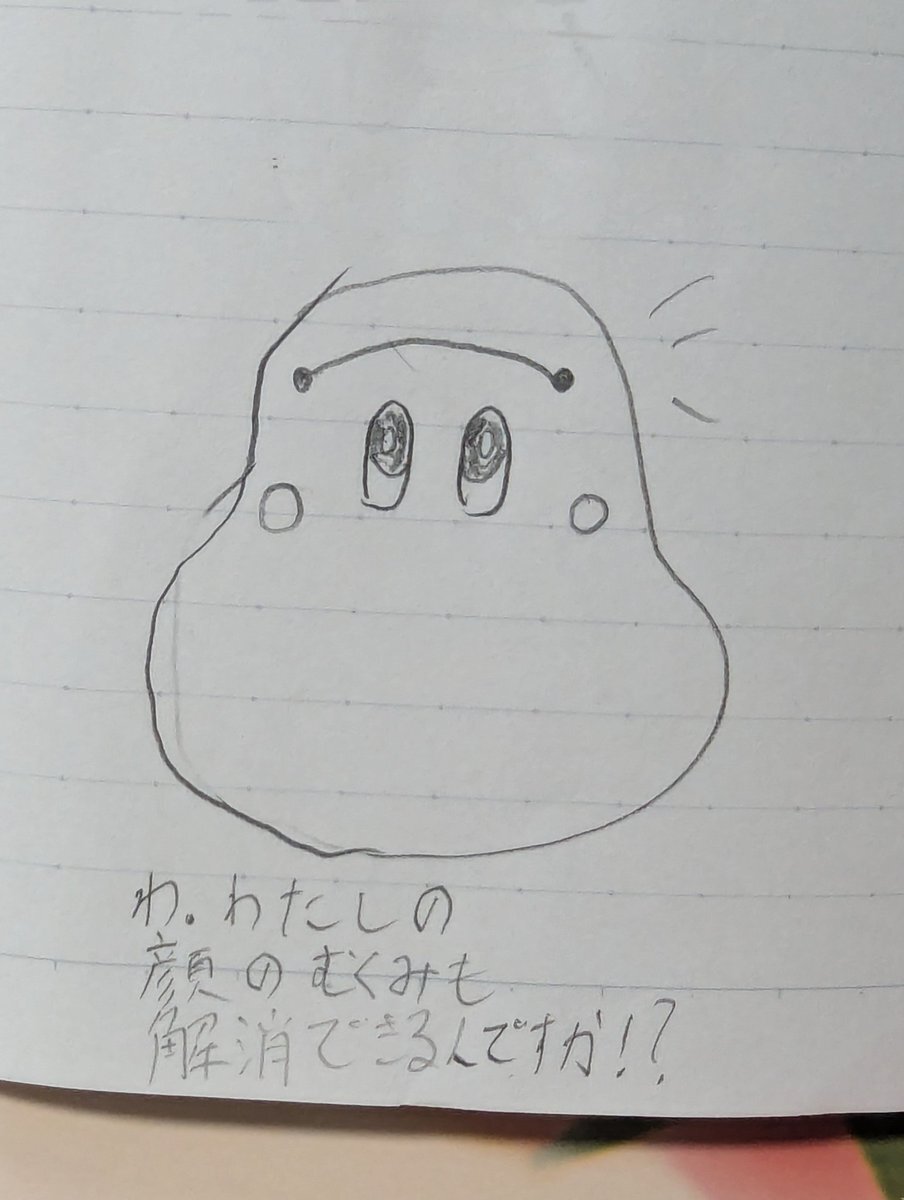 わ．わたしの
顔のむくみも
解消できるんですか！？